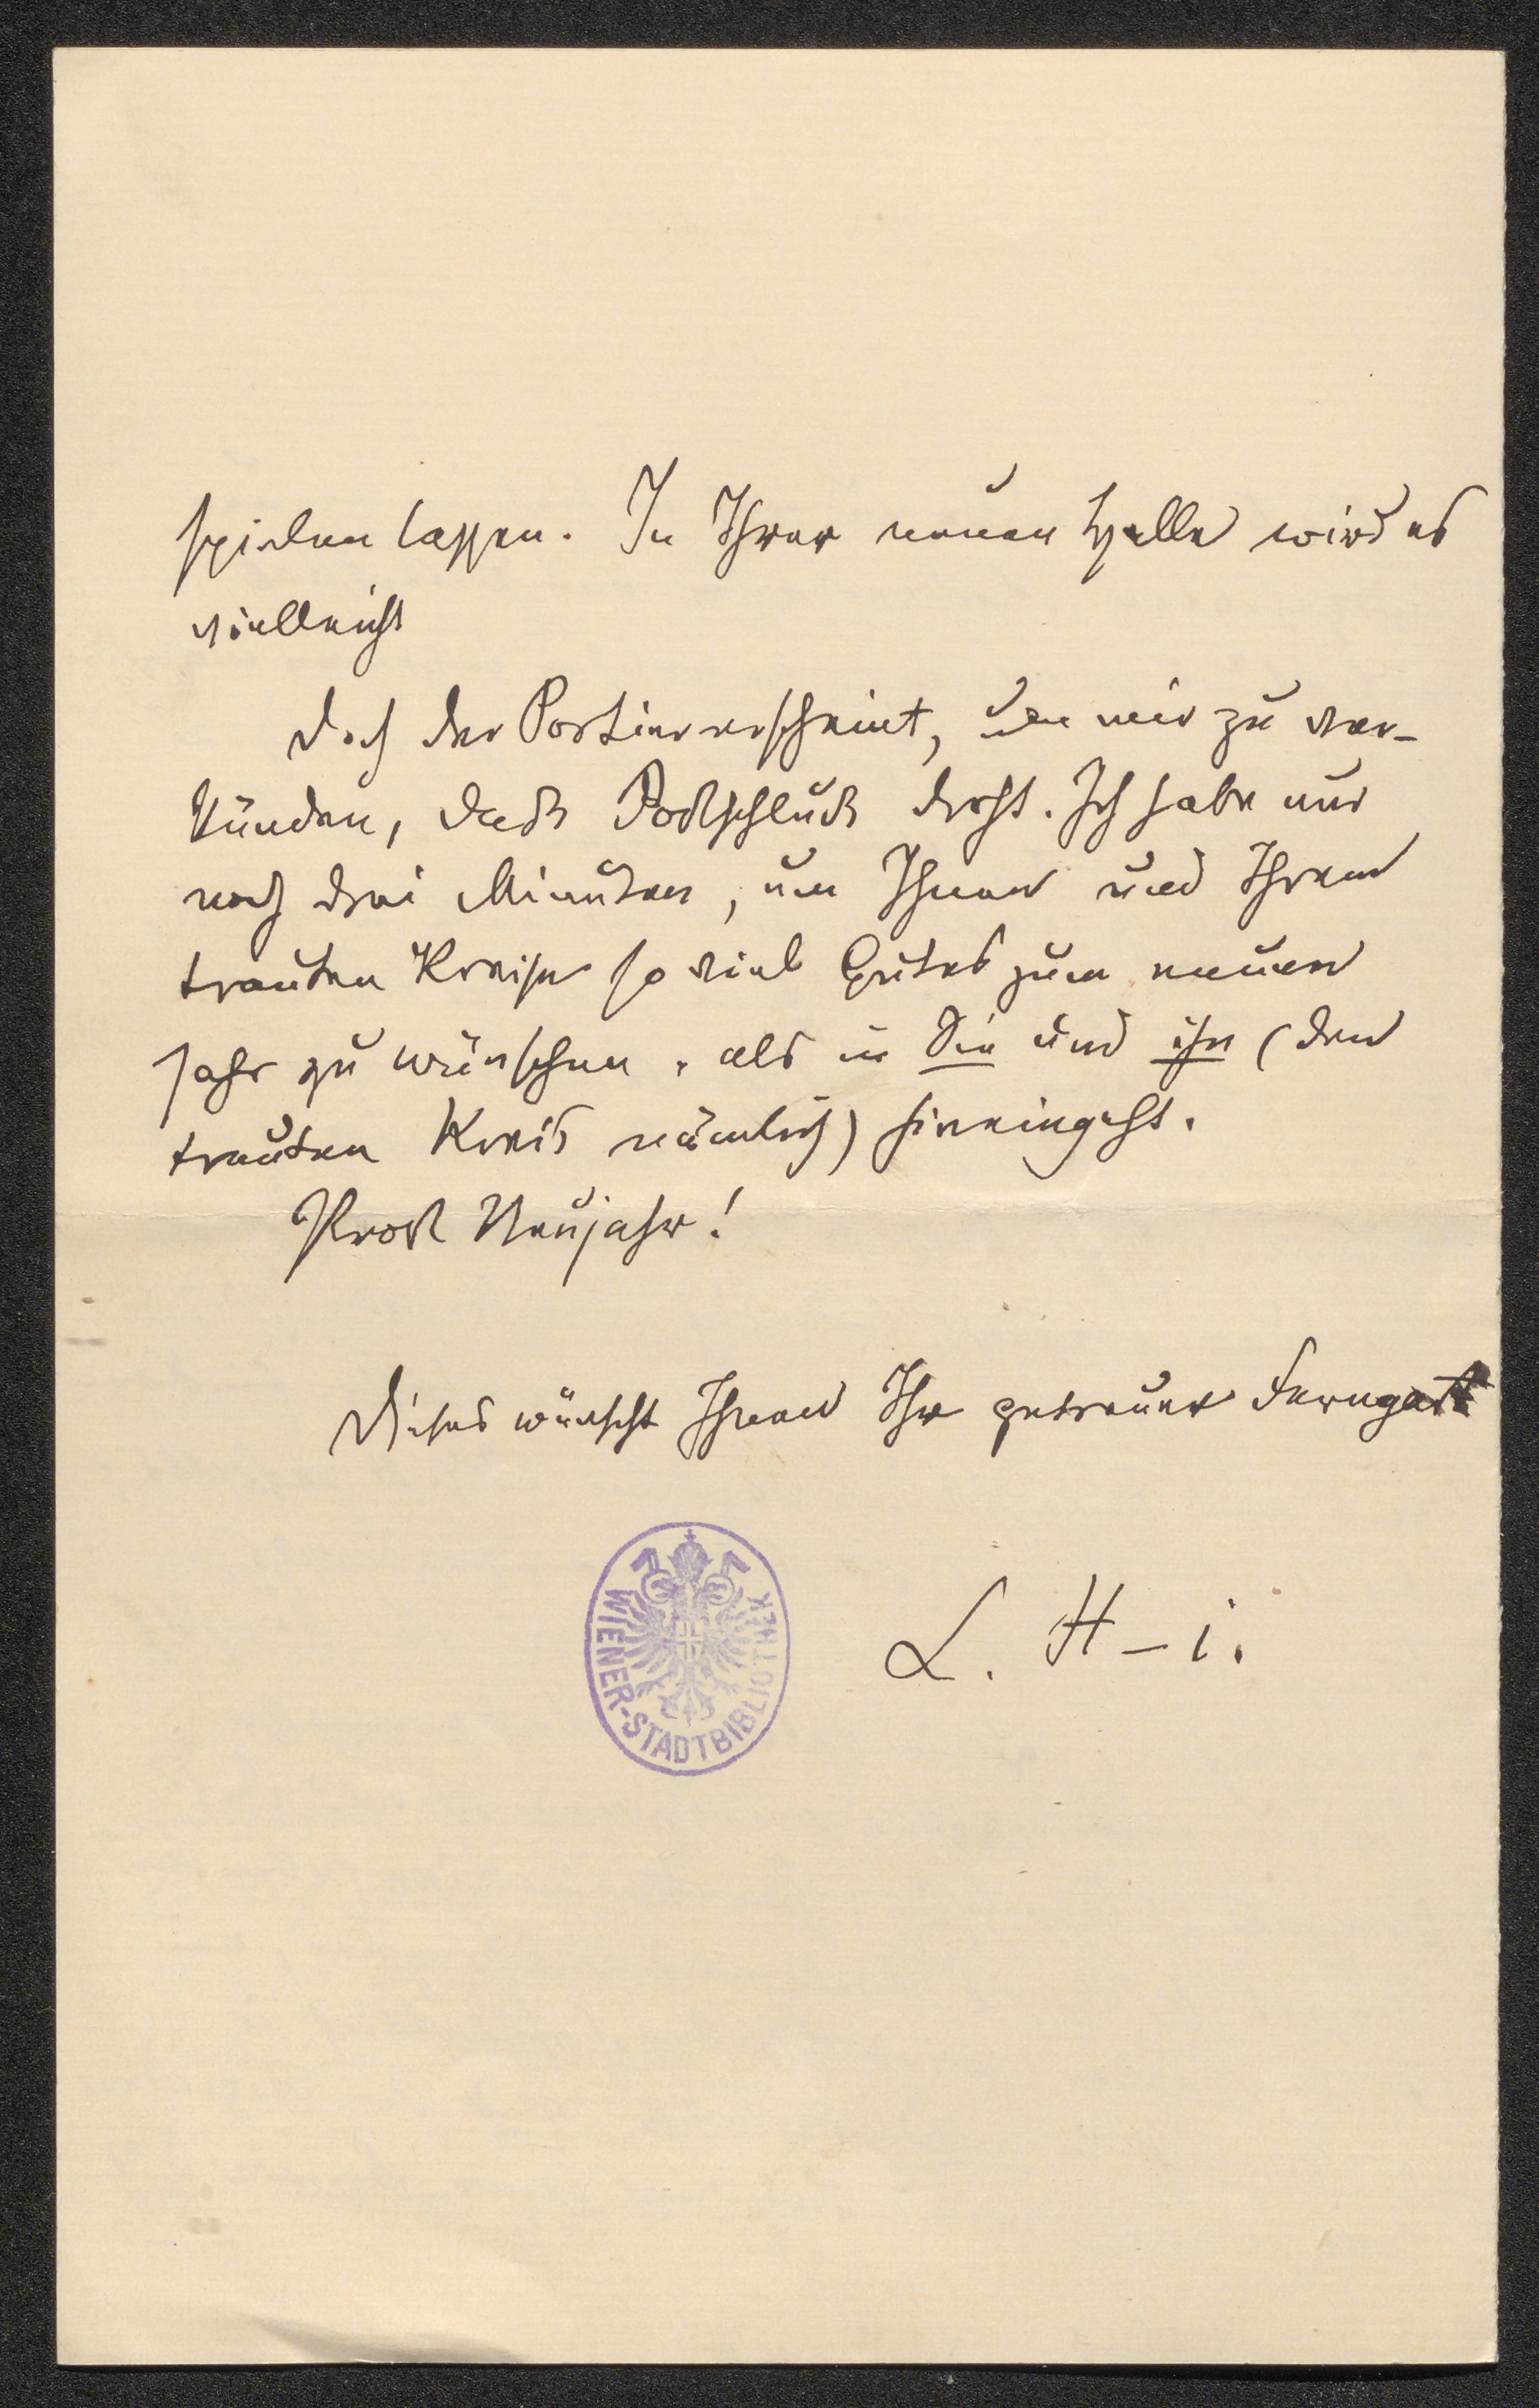 spielen lassen. In Ihrer neuen Halle wird es
vielleicht
Doch der Portier erscheint, um mir zu ver-
künden, daß Postschluß droht. Ich habe nur
noch drei Minuten, um Ihnen und Ihrem
trauten Kreise so viel Gutes zum neuen
Jahr zu wünschen, als in Sie und ihn (den
trauten Kreis nämlich) hineingeht.
Prost Neujahr!
Dieses wünscht Ihnen Ihr getreuer Ferngast
L. H-i.
WIENER-STADTBIBLIOTHEK